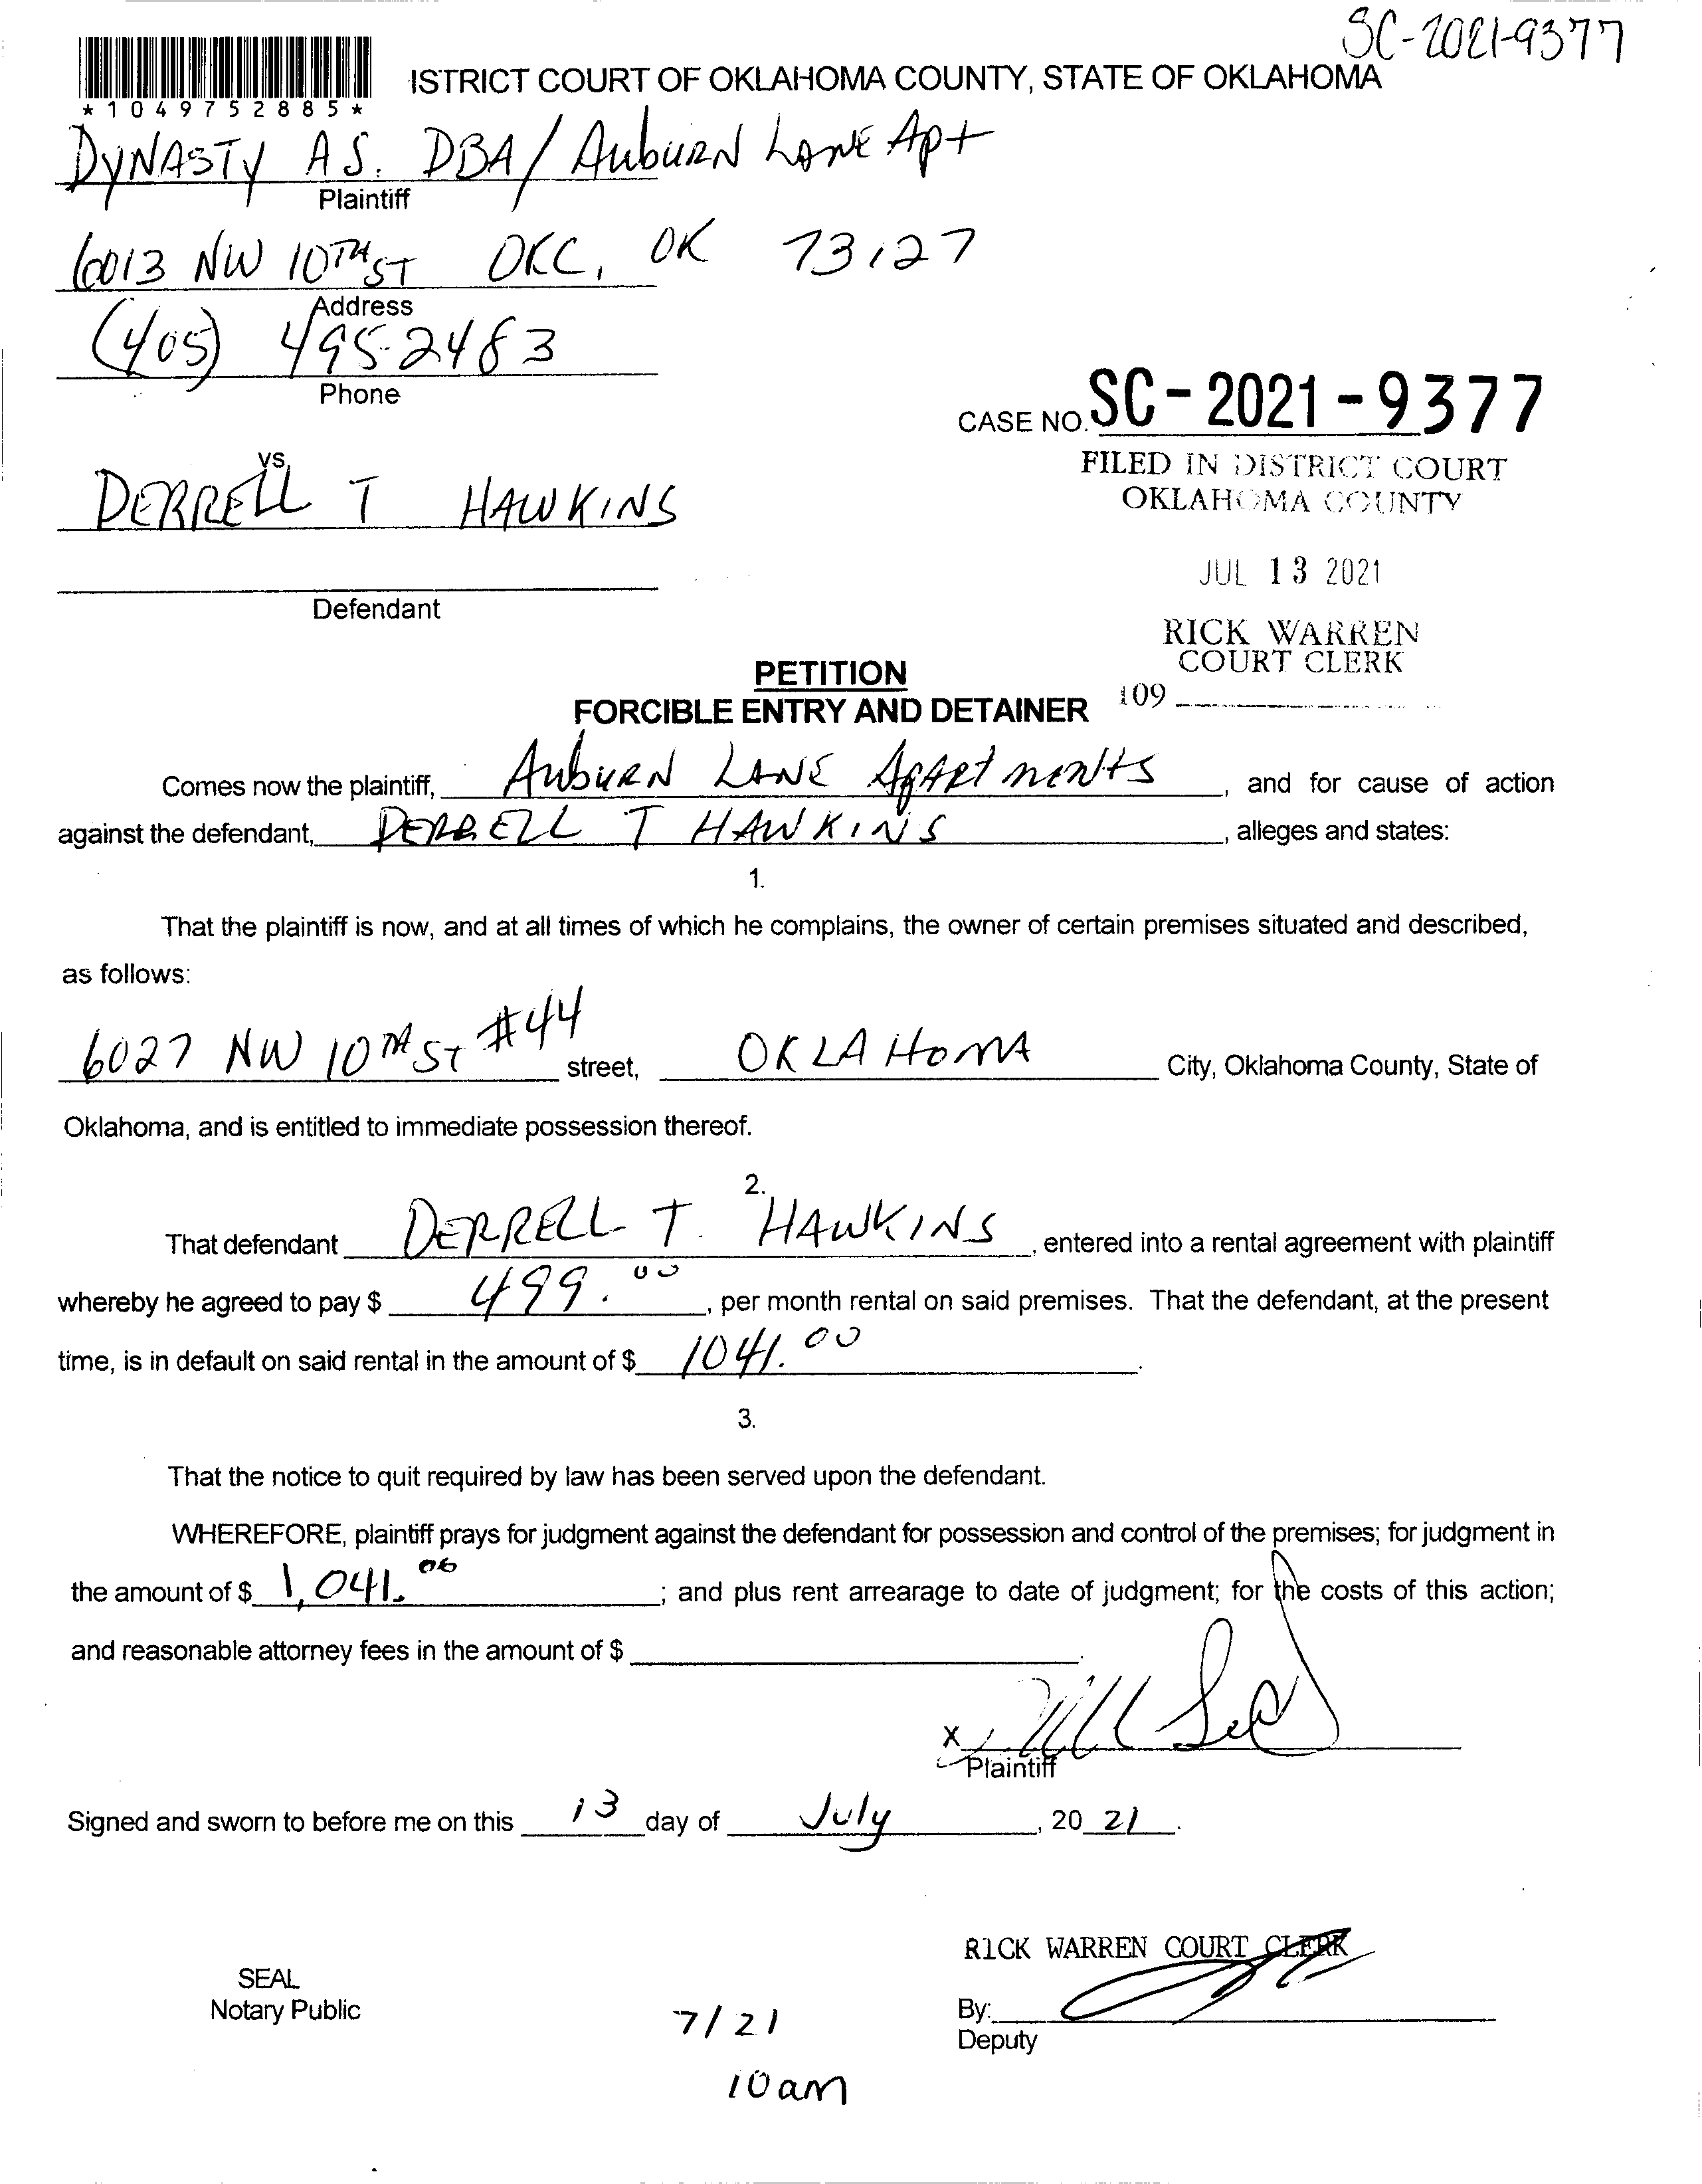 SC-2021-9377
ISTRICT COURT OF OKLAHOMA COUNTY, STATE OF OKLAHOMA
*1049752885*
DYNASTY AS. DBA/ AuburN LANE Apt
Plaintiff
6013 NW 10TH ST OKC, OK 73127
Address
(405) 495-2483
Phone
CASE NO. SC-2021-9377
FILED IN DISTRICT COURT
OKLAHOMA COUNTY
vs.
DERRELL T HAWKINS
JUL 13 2021
Defendant
RICK WARREN
COURT CLERK
109
PETITION
FORCIBLE ENTRY AND DETAINER
Comes now the plaintiff, AuburN LANE Apartments, and for cause of action
against the defendant, DERRELL T HAWKINS, alleges and states:
1.
That the plaintiff is now, and at all times of which he complains, the owner of certain premises situated and described,
as follows:
6027 NW 10TH ST #44 street, OKLAHOMA City, Oklahoma County, State of
Oklahoma, and is entitled to immediate possession thereof.
2.
That defendant DERRELL T. HAWKINS, entered into a rental agreement with plaintiff
whereby he agreed to pay $ 499.00, per month rental on said premises. That the defendant, at the present
time, is in default on said rental in the amount of $ 1041.00.
3.
That the notice to quit required by law has been served upon the defendant.
WHEREFORE, plaintiff prays for judgment against the defendant for possession and control of the premises; for judgment in
the amount of $ 1,041.00; and plus rent arrearage to date of judgment; for the costs of this action;
and reasonable attorney fees in the amount of $ .
X
Plaintiff
Signed and sworn to before me on this 13 day of July, 20 21.
RICK WARREN COURT CLERK
SEAL
Notary Public
By:
Deputy
7/21
10am